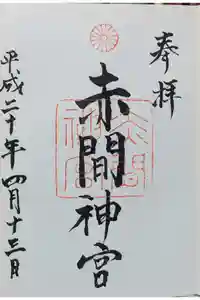 奉拝
赤間神宮
平成二十年四月十三日